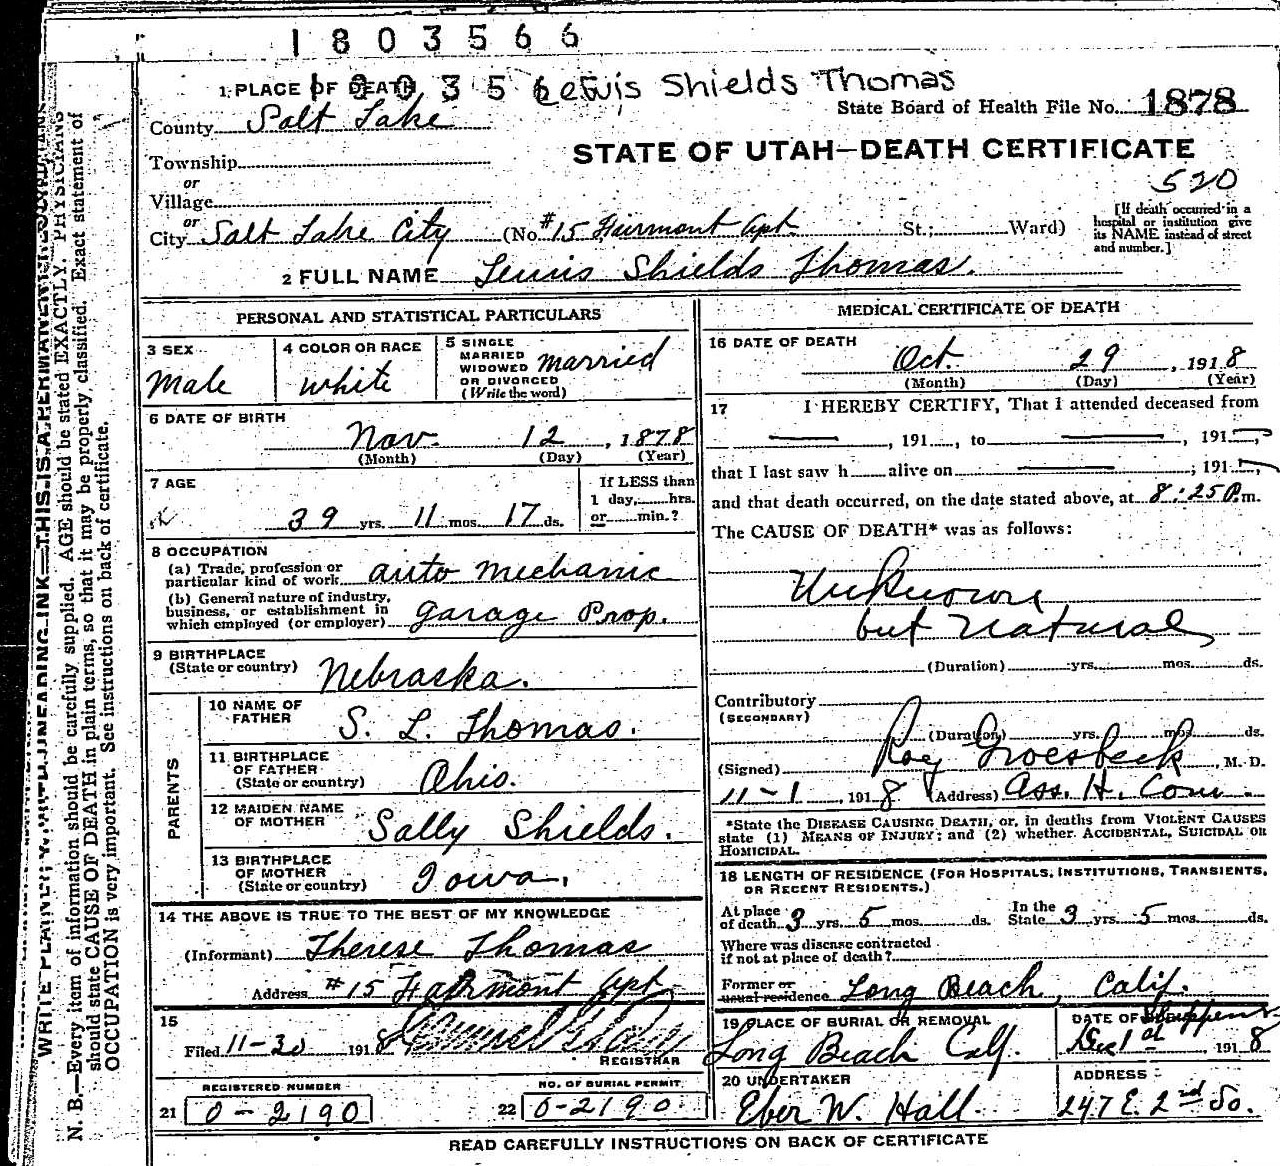 1803566
Lewis Shields Thomas
1 PLACE OF DEATH
State Board of Health File No. 1878
County Salt Lake
STATE OF UTAH—DEATH CERTIFICATE
Township
520
or
Village
or
City Salt Lake City (No. #15 Fairmont Apt St.; Ward)
[If death occurred in a hospital or institution give its NAME instead of street and number.]
2 FULL NAME Lewis Shields Thomas.
PERSONAL AND STATISTICAL PARTICULARS
3 SEX
Male
4 COLOR OR RACE
white
5 SINGLE
MARRIED
WIDOWED
OR DIVORCED
(Write the word)
married
6 DATE OF BIRTH
Nov. 12, 1878
(Month) (Day) (Year)
7 AGE
39 yrs. 11 mos. 17 ds.
If LESS than
1 day, hrs.
or min.?
8 OCCUPATION
(a) Trade, profession or
particular kind of work auto mechanic
(b) General nature of industry,
business, or establishment in
which employed (or employer) garage Prop.
9 BIRTHPLACE
(State or country) Nebraska.
PARENTS
10 NAME OF
FATHER S. L. Thomas.
11 BIRTHPLACE
OF FATHER
(State or country) Ohio.
12 MAIDEN NAME
OF MOTHER Sally Shields.
13 BIRTHPLACE
OF MOTHER
(State or country) Iowa.
14 THE ABOVE IS TRUE TO THE BEST OF MY KNOWLEDGE
(Informant) Therese Thomas
Address #15 Fairmont Apt
15
Filed 11-30 1918
REGISTRAR
REGISTERED NUMBER
21 0-2190
NO. OF BURIAL PERMIT
22 0-2190.
MEDICAL CERTIFICATE OF DEATH
16 DATE OF DEATH
Oct. 29, 1918
(Month) (Day) (Year)
17 I HEREBY CERTIFY, That I attended deceased from
—, 191 , to —, 191 ,
that I last saw h alive on — ; 191 ,
and that death occurred, on the date stated above, at 8:25 P.m.
The CAUSE OF DEATH* was as follows:
Unknown
but Natural
(Duration) yrs. mos. ds.
Contributory
(SECONDARY)
(Duration) yrs. mos. ds.
(Signed) Roy Groesbeck, M. D.
11-1, 1918 (Address) Ass. H. Com.
*State the DISEASE CAUSING DEATH, or, in deaths from VIOLENT CAUSES
state (1) MEANS OF INJURY; and (2) whether ACCIDENTAL, SUICIDAL OR
HOMICIDAL.
18 LENGTH OF RESIDENCE (FOR HOSPITALS, INSTITUTIONS, TRANSIENTS,
OR RECENT RESIDENTS.)
At place
of death 3 yrs. 5 mos. ds.
In the
State 3 yrs. 5 mos. ds.
Where was disease contracted
if not at place of death?
Former or
usual residence Long Beach, Calif.
19 PLACE OF BURIAL OR REMOVAL
Long Beach Calf.
DATE OF
Dec 1st, 1918
20 UNDERTAKER
Eber W. Hall.
ADDRESS
247 E. 2nd So.
READ CAREFULLY INSTRUCTIONS ON BACK OF CERTIFICATE
WRITE PLAINLY, WITH UNFADING INK—THIS IS A PERMANENT
N. B.—Every item of information should be carefully supplied. AGE should be stated EXACTLY. PHYSICIANS
should state CAUSE OF DEATH in plain terms, so that it may be properly classified. Exact statement of
OCCUPATION is very important. See instructions on back of certificate.